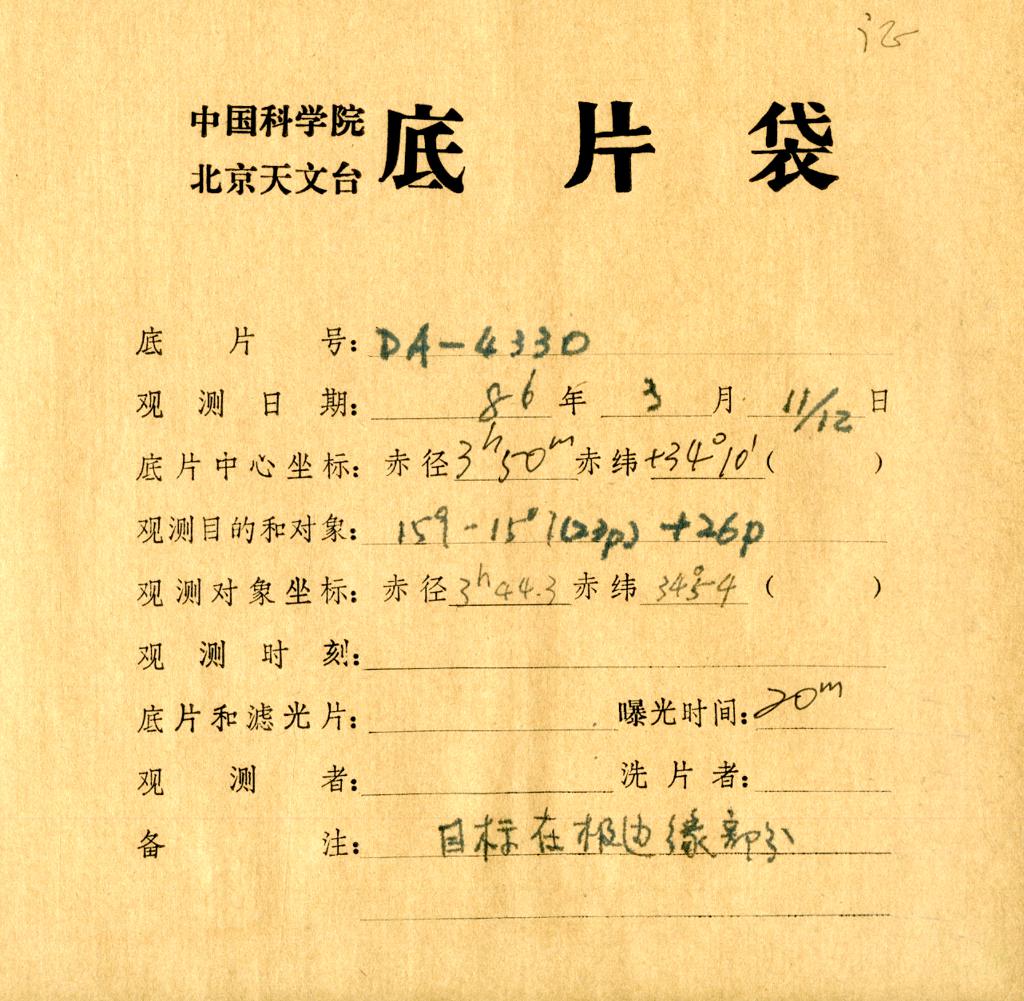 中国科学院
北京天文台
底片袋
底片号: DA-4330
观测日期: 86年 3月 11/12日
底片中心坐标: 赤径 3h50m 赤纬 +34°10' ( )
观测目的和对象: (23p) +26p
观测对象坐标: 赤径 3h44.3 赤纬 34°54 ( )
观测时刻:
底片和滤光片: 曝光时间: 20m
观测者: 洗片者:
备注: 目标在极边缘部分